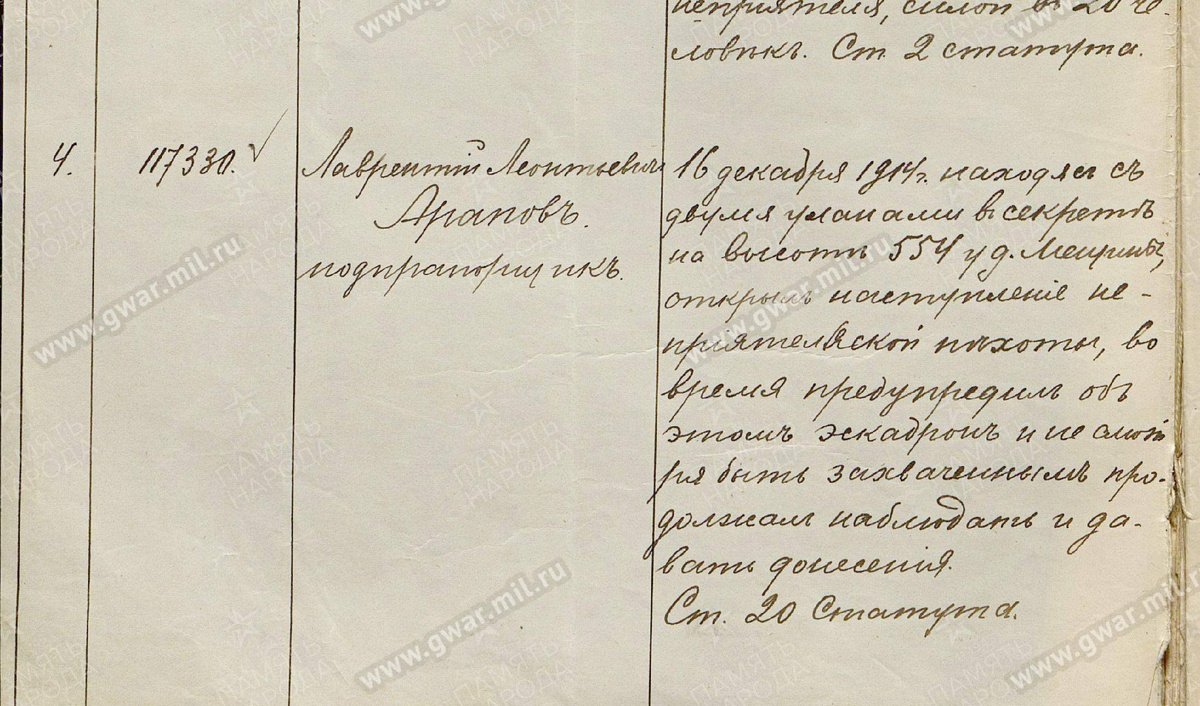 неприятеля, силой въ 20 че-
ловѣкъ. Ст. 2 статута.
4.
117330.
Лаврентій Леонтьевичъ
Араповъ.
подпрапорщикъ.
16 декабря 1914 г. находясь съ
двумя уланами въ секретѣ
на высотѣ 554 у д.
открылъ наступленіе не-
пріятельской пѣхоты, во
время предупредилъ объ
этомъ эскадронъ и не смот
ря быть захваченнымъ про-
должалъ наблюдать и да-
вать донесенія.
Ст. 20 Статута.
www.gwar.mil.ru
ПАМЯТЬ НАРОДА